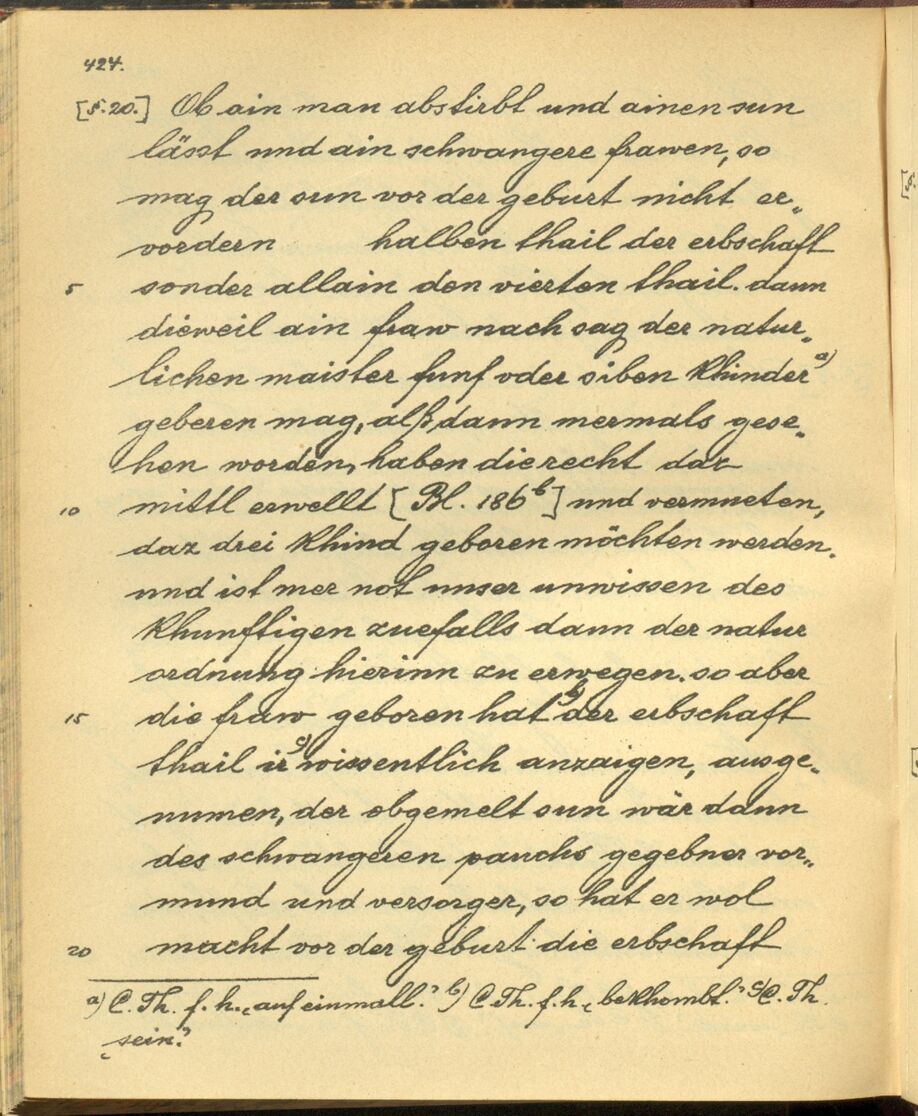 424.
[§. 20.] Ob ain man abstirbt und ainen sun
lässt und ain schwangere frawen, so
mag der sun vor der geburt nicht er„
vordern halben thail der erbschaft
5 sonder allain den vierten thail. dann
dieweil ain fraw nach sag der natur„
lichen maister funf oder siben khinder a)
geberen mag, alß dann mermals gese„
hen worden, haben die recht daz
10 mittl erwellt [Bl. 186b] und vermueten,
daz drei khind geboren möchten werden.
und ist mer not unser unwissen des
khunftigen zuefalls dann der natur
ordnung hierinn zu erwegen. so aber
15 die fraw geboren hat b) der erbschaft
thail ir c) wissentlich anzaigen, ausge„
numen, der obgemelt sun wär dann
des schwangeren pauchs gegebner vor„
mund und versorger, so hat er wol
20 macht vor der geburt die erbschaft
a) C. Th. f. h. „auf einmall.“ b) C. Th. f. h. „bekhombt.“ c) C. Th.
„sein.“